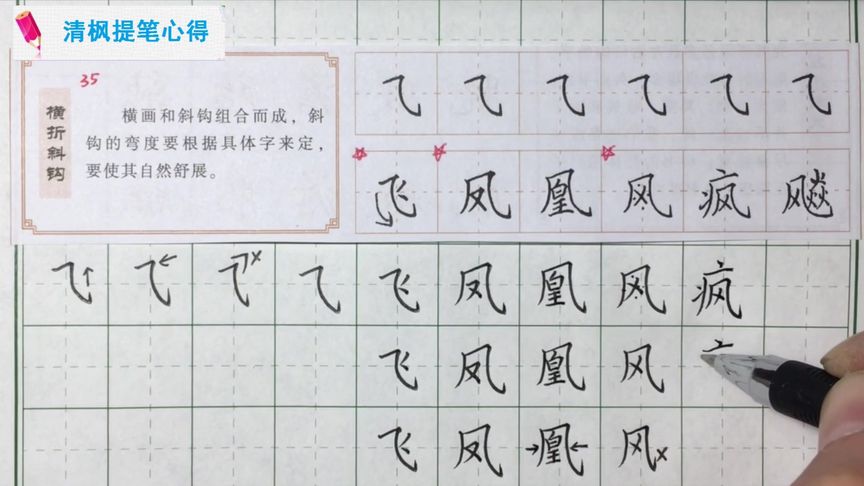 清枫提笔心得
35
横折斜钩
横画和斜钩组合而成，斜
钩的弯度要根据具体字来定，
要使其自然舒展。
⺄ ⺄ ⺄ ⺄ ⺄ ⺄
飞 凤 凰 风 疯 飚
⺄ ⺄ ⺄ ⺄ 飞 凤 凰 风 疯
飞 凤 凰 风
飞 凤 凰 风